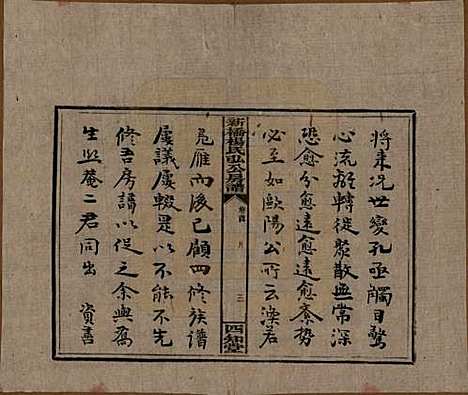 將来况世變孔亟觸目驚
心流離轉徙聚散無常深
恐愈分愈遠愈遠愈紊勢
必至如歐陽公所云漠若
新橋楊氏弘公房譜
卷首
三
四知堂
鳧雁而後已顧四修族譜
屢議屢輟是以不能不先
修吾房譜以促之余與爲
生熙菴二君同出 資善